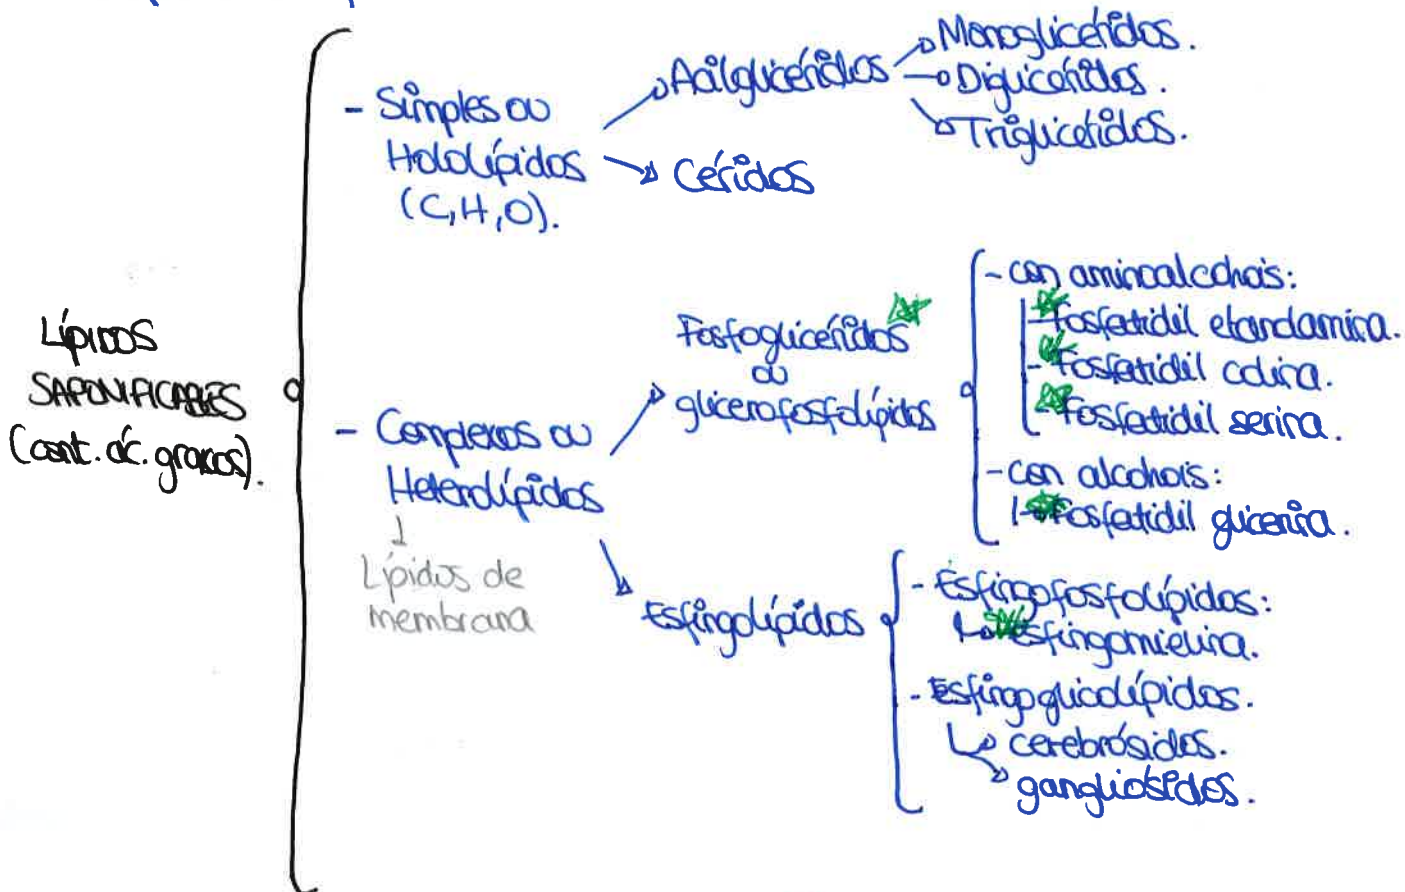 Lípidos
SAPONIFICABLES
(cont. ác. graxos).
- Simples ou
Hololípidos
(C, H, O).
Acilglicéridos
Monoglicéridos.
Diglicéridos.
Triglicéridos.
Céridos
- Complexos ou
Heterolípidos
Lípidos de
membrana
Fosfoglicéridos
ou
glicerofosfolípidos
- con aminoalcohois:
Fosfatidil etanolamina.
- Fosfatidil colina.
- Fosfatidil serina.
- con alcohois:
Fosfatidil glicerina.
Esfingolípidos
- Esfingofosfolípidos:
esfingomielina.
- Esfingoglicolípidos.
cerebrósidos.
gangliósidos.